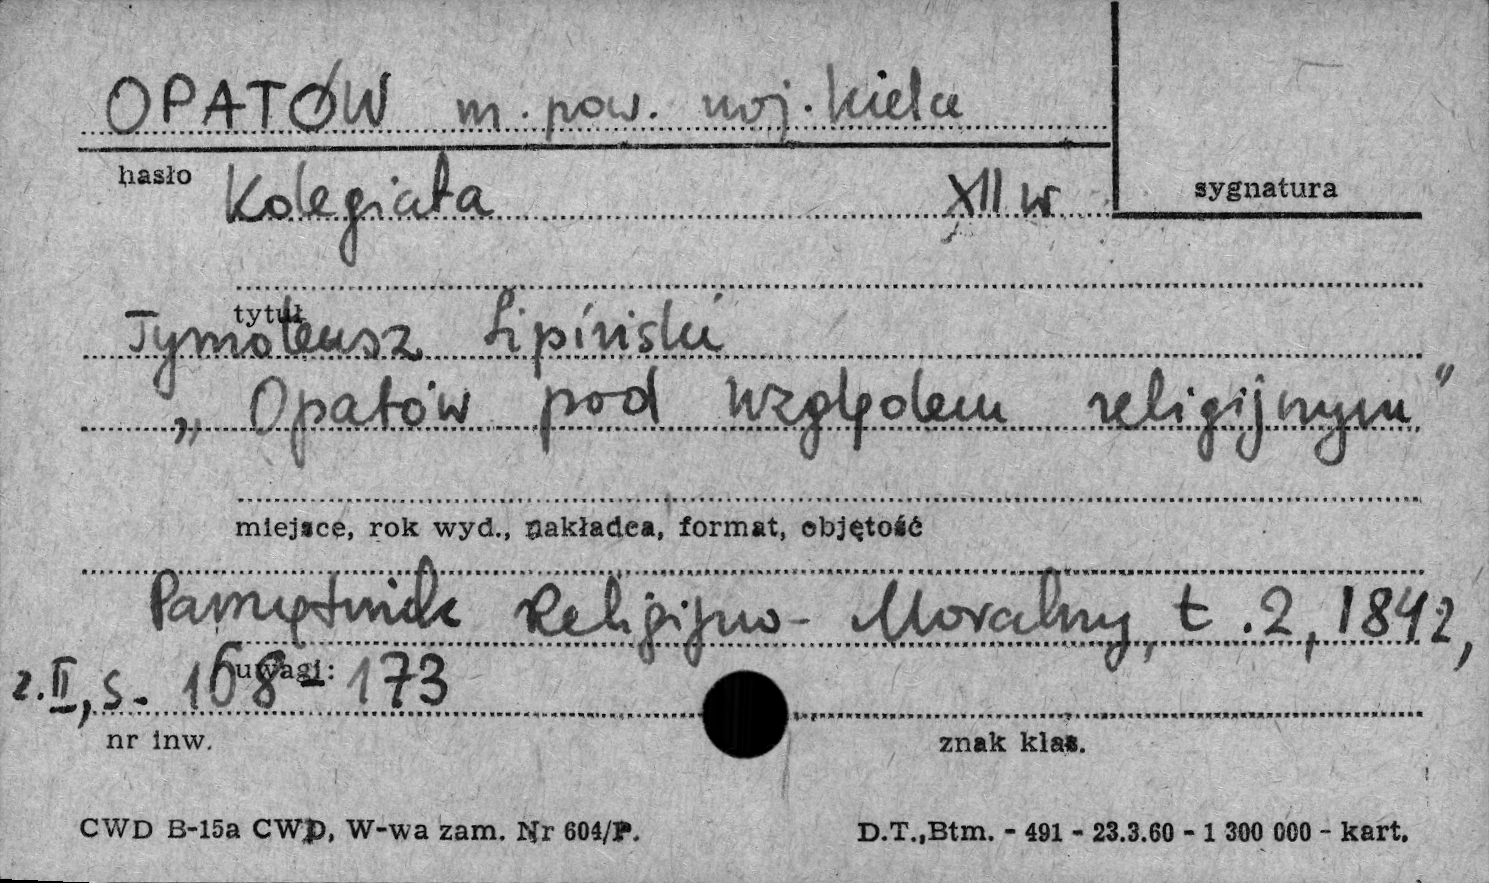 OPATÓW m. pow. woj. Kielce
hasło
Kolegiata XII w
sygnatura
tytuł
Tymoteusz Lipiński
„Opatów pod względem religijnym"
miejsce, rok wyd., nakładca, format, objętość
Pamiętnik Religijno-Moralny, t.2, 1842,
uwagi:
z.II, s. 168-173
nr inw.
znak klas.
CWD B-15a CWD, W-wa zam. Nr 604/P.
D.T.,Btm. - 491 - 23.3.60 - 1 300 000 - kart.